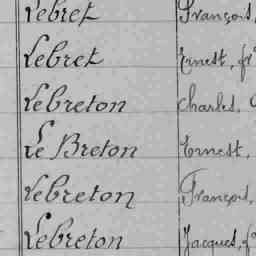 Lebret François,
Lebret Ernest, fr
Lebreton Charles,
Le Breton Ernest,
Lebreton François,
Lebreton Jacques, f